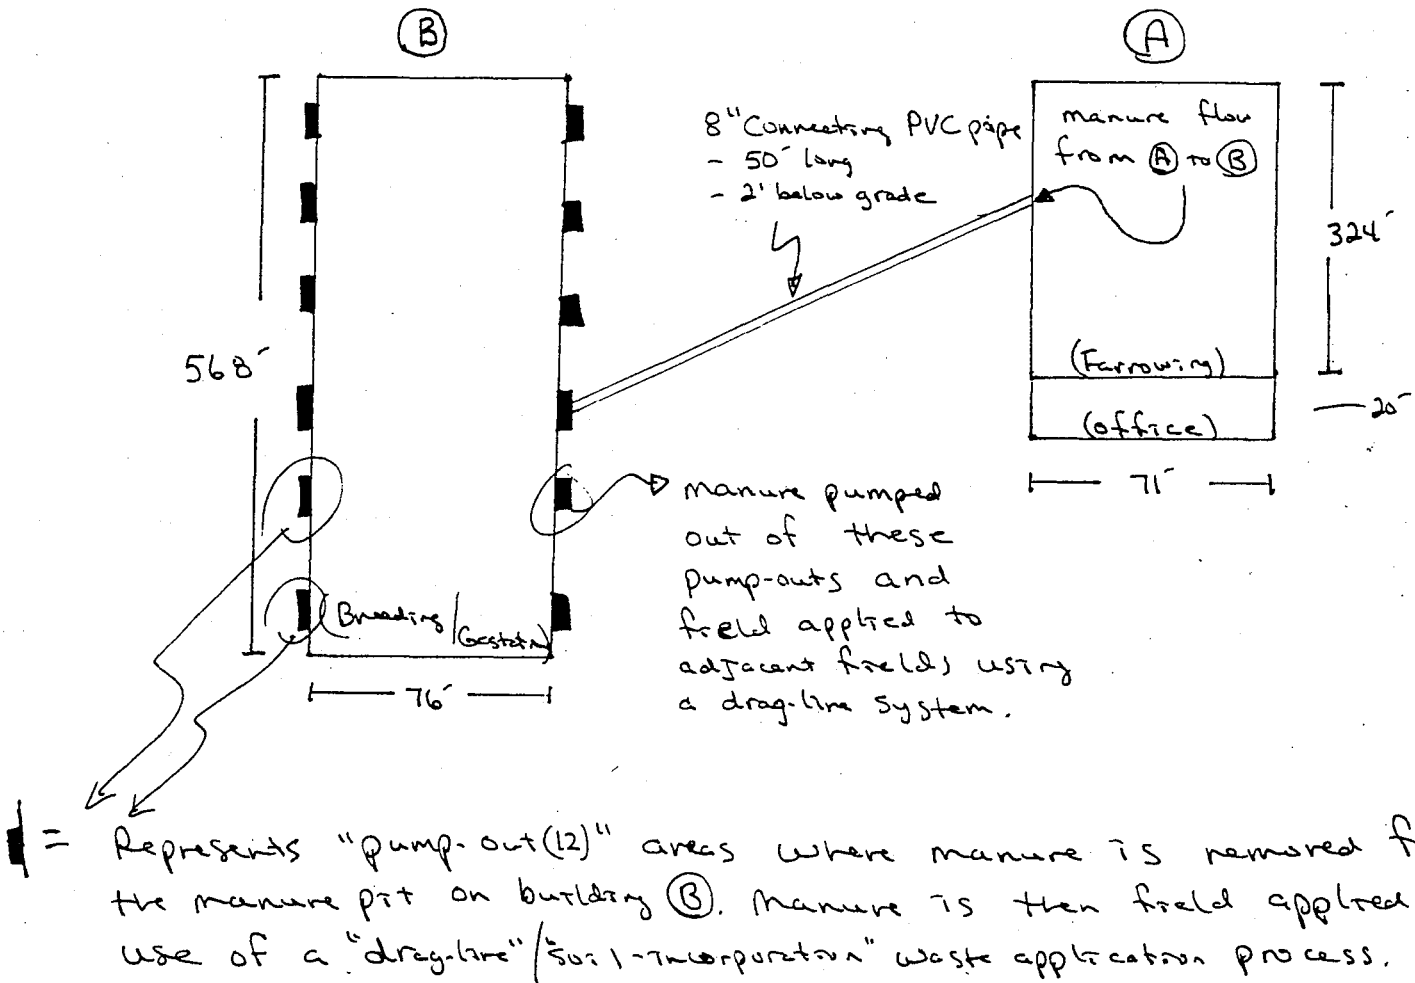 B
A
8" Connecting PVC pipe
- 50' long
- 2' below grade
manure flow
from A to B
324'
568'
(Farrowing)
20'
(office)
71'
manure pumped
out of these
pump-outs and
field applied to
adjacent fields using
a drag-line system.
(Breeding/
Gestation)
76'
= Represents "pump-out(12)" areas where manure is removed f
the manure pit on building B. Manure is then field applied
use of a "drag-line"/"soil-incorporation" waste application process.